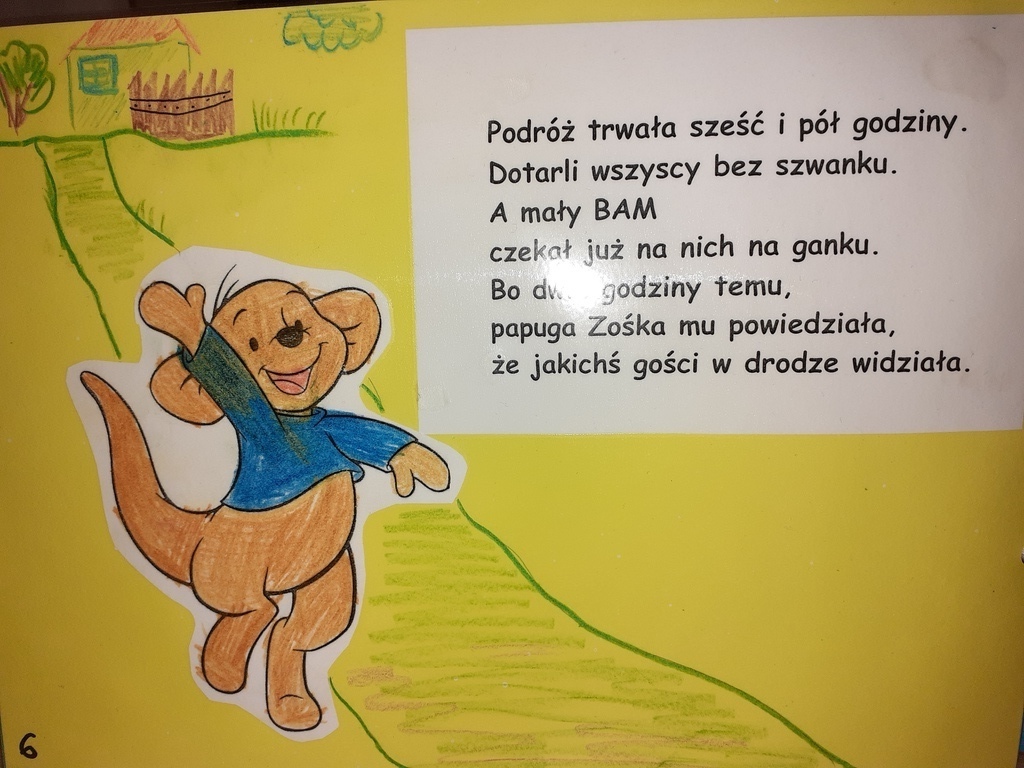 Podróż trwała sześć i pół godziny.
Dotarli wszyscy bez szwanku.
A mały BAM
czekał już na nich na ganku.
Bo godziny temu,
papuga Zośka mu powiedziała,
że jakichś gości w drodze widziała.
6